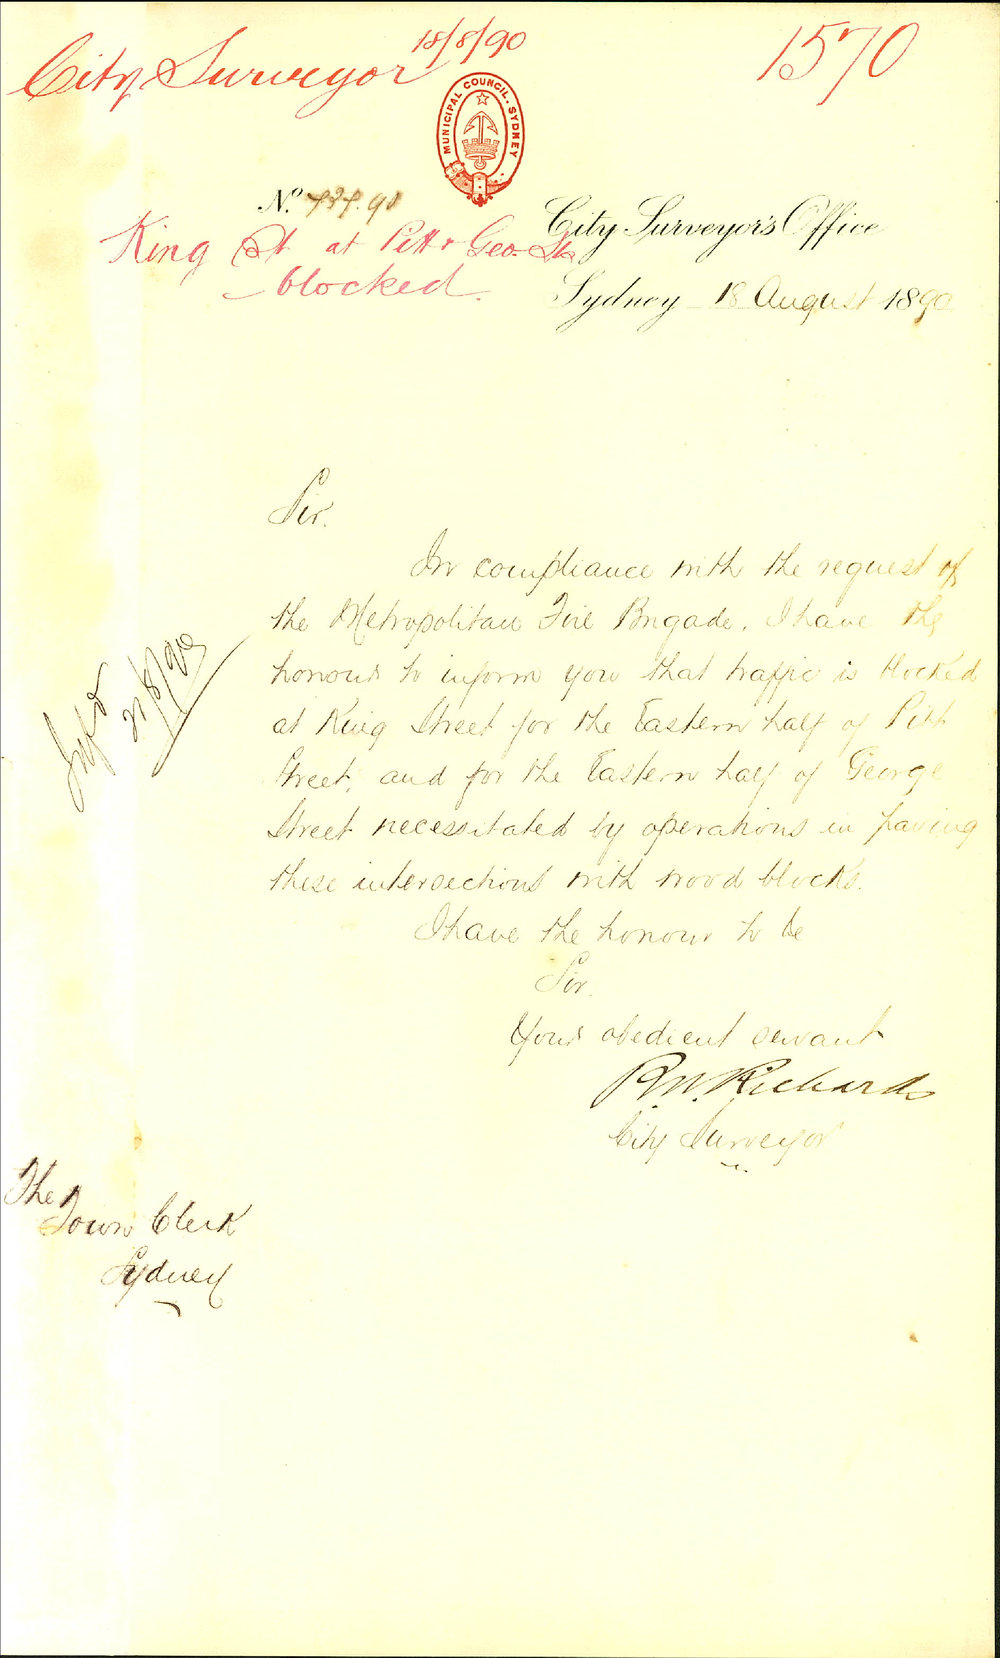 City Surveyor 18/8/90
1570
MUNICIPAL COUNCIL. SYDNEY
No. 90
City Surveyor's Office
King St at Pitt & Geo. Sts
blocked.
Sydney 18 August 1890
Sir.
In compliance with the request of
the Metropolitan Fire Brigade, I have the
honour to inform you that traffic is blocked
at King Street for the Eastern half of Pitt
Street, and for the Eastern half of George
Street necessitated by operations in paving
these intersections with wood blocks.
I have the honour to be
Sir.
Your obedient servant
R.W. Richards
City Surveyor
21/8/90
The
Town Clerk
Sydney